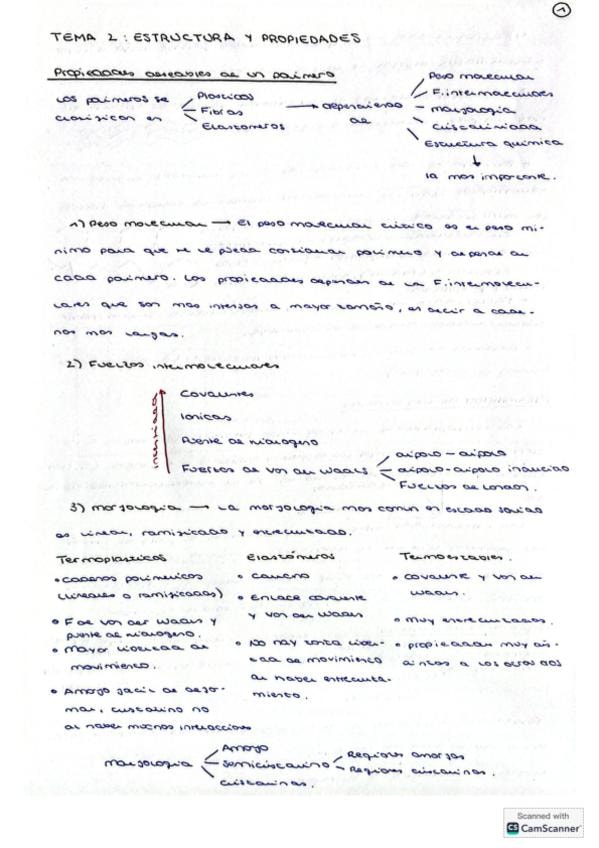 1
TEMA 2: ESTRUCTURA Y PROPIEDADES
Propiedades deseables de un polímero
Los polímeros se clasifican en
Plásticos
Fibras
Elastómeros
dependiendo de
Peso molecular
F. intermoleculares
morfología
cristalinidad
Estructura química
la más importante.
1) Peso molecular → El peso molecular crítico es el peso mí-
nimo para que se le pueda considerar polímero y depende de
cada polímero. Las propiedades dependen de la F. intermolecu-
lares que son más intensas a mayor tamaño, es decir a cade-
nas mas largas.
2) Fuerzas intermoleculares
intensidad
Covalentes
Iónicas
Puente de hidrógeno
Fuerzas de Van der Waals
dipolo - dipolo
dipolo - dipolo inducido
Fuerzas de London.
3) morfología → La morfología mas común en estado sólido
es lineal, ramificada y entrecruzada.
Termoplásticos
• cadenas poliméricas
(lineales o ramificadas)
• Fde Van der Waals y
puente de hidrógeno.
• Mayor libertad de
movimiento.
• Amorfo fácil de defor-
mar, cristalino no
al haber muchas interacciones
Elastómeros
• caucho
• Enlace covalente
y Van der Waals
• No hay tanta liber-
tad de movimiento
al haber entrecruza-
miento.
Termoestables.
• covalente y Van der
Waals.
• Muy entrecruzados.
• propiedades muy dis-
tintas a las otras dos
morfología
Amorfo
semicristalino
cristalinas.
Regiones amorfas
Regiones cristalinas.
Scanned with
CS CamScanner